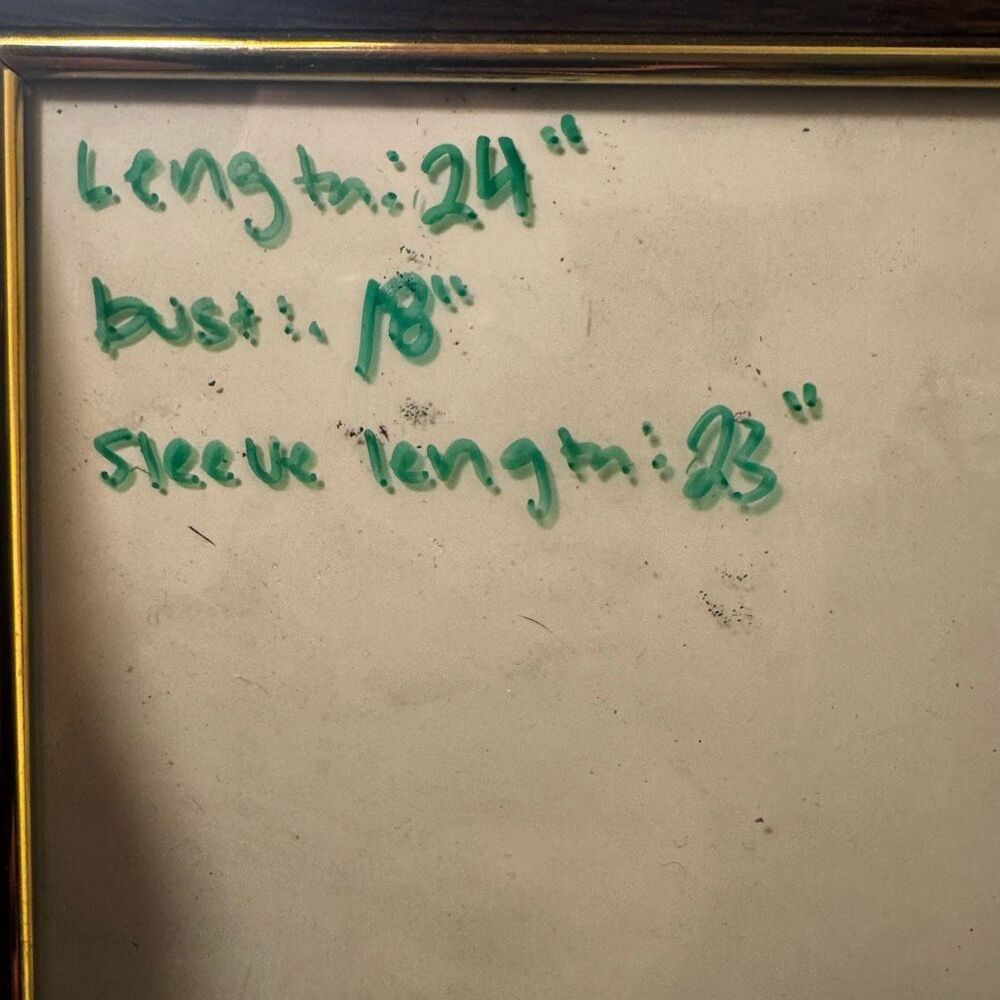 Length: 24"
bust: 18"
Sleeve length: 23"